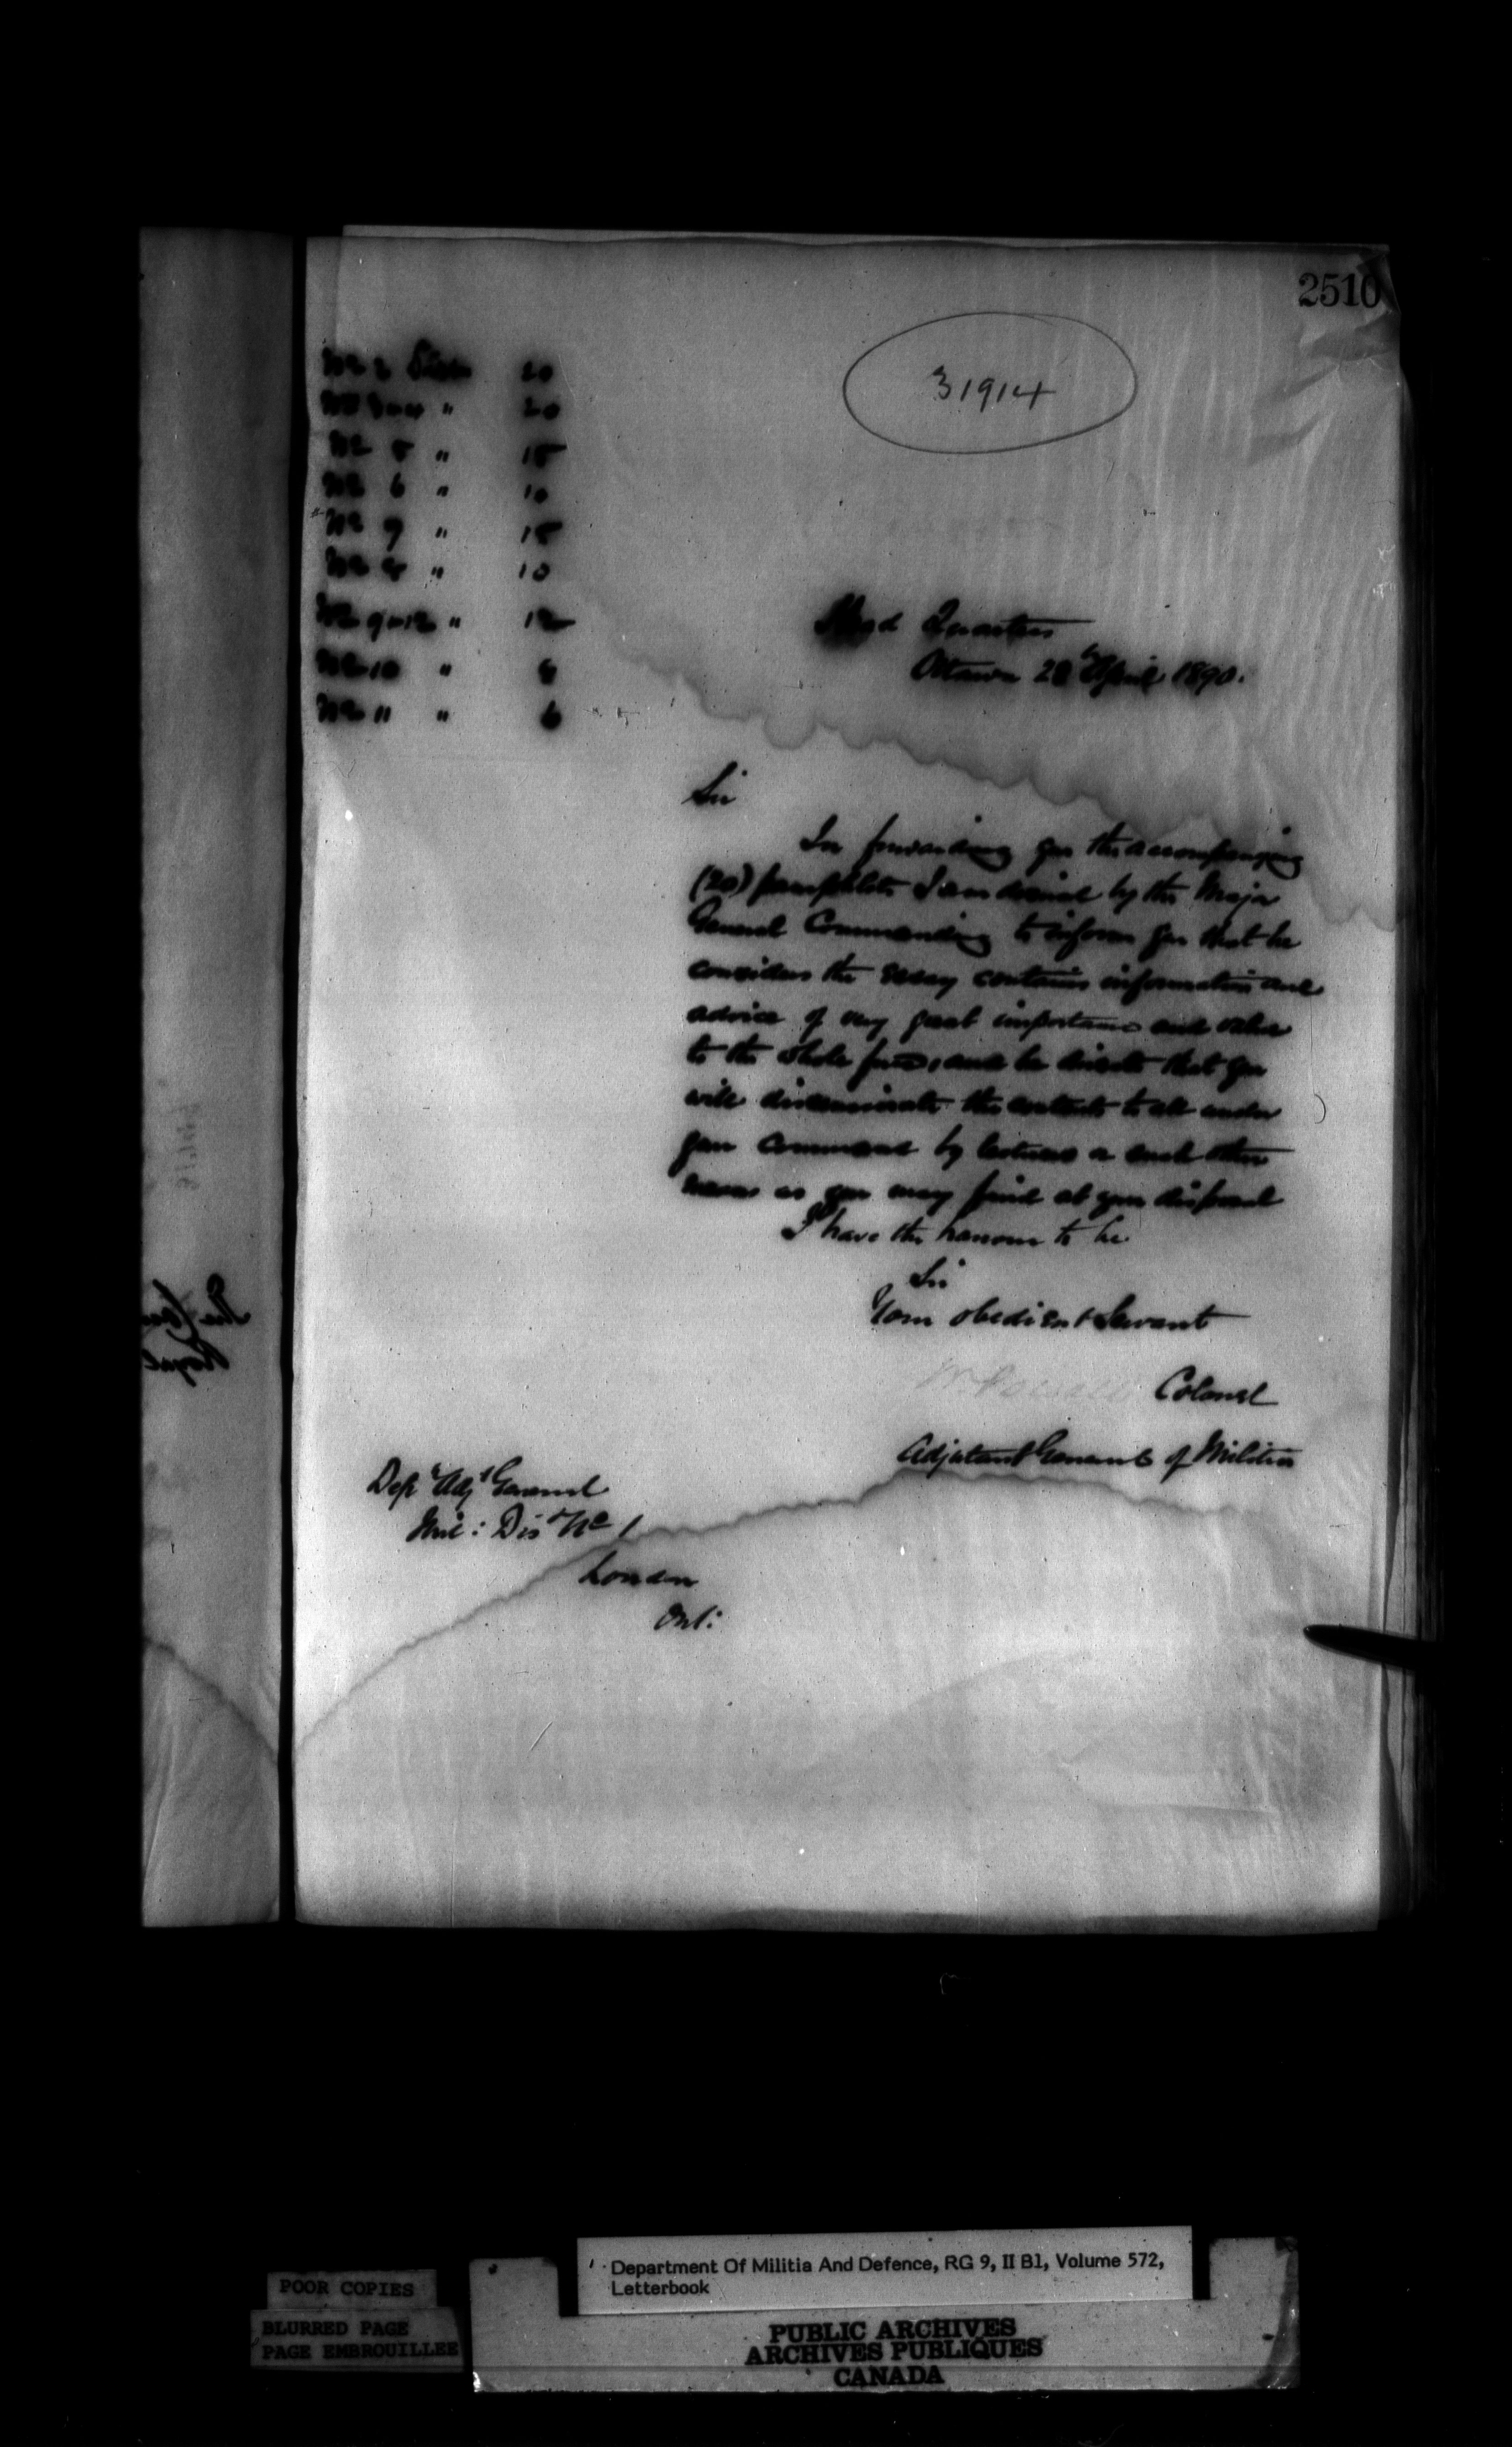 2510
31914
No 2 Distn 20
No 3 and 4 " 20
No 5 " 15
No 6 " 10
No 7 " 15
No 8 " 10
No 9 and 12 " 12
No 10 " 8
No 11 " 6
Head Quarters
Ottawa 28th April 1890.
Sir
In forwarding you the accompanying
(20) pamphlets I am desired by the Major
General Commanding to inform you that he
considers the essay contains information and
advice of very great importance and value
to the whole force, and he directs that you
will disseminate the contents to all under
your command by lectures or such other
means as you may find at your disposal
I have the honour to be
Sir
Your obedient Servant
W Powell Colonel
Adjutant General of Militia
Depy Adjt General
Mil: Dist No 1
London
Ont:
Department Of Militia And Defence, RG 9, II B1, Volume 572,
Letterbook
POOR COPIES
BLURRED PAGE
PAGE EMBROUILLEE
PUBLIC ARCHIVES
ARCHIVES PUBLIQUES
CANADA